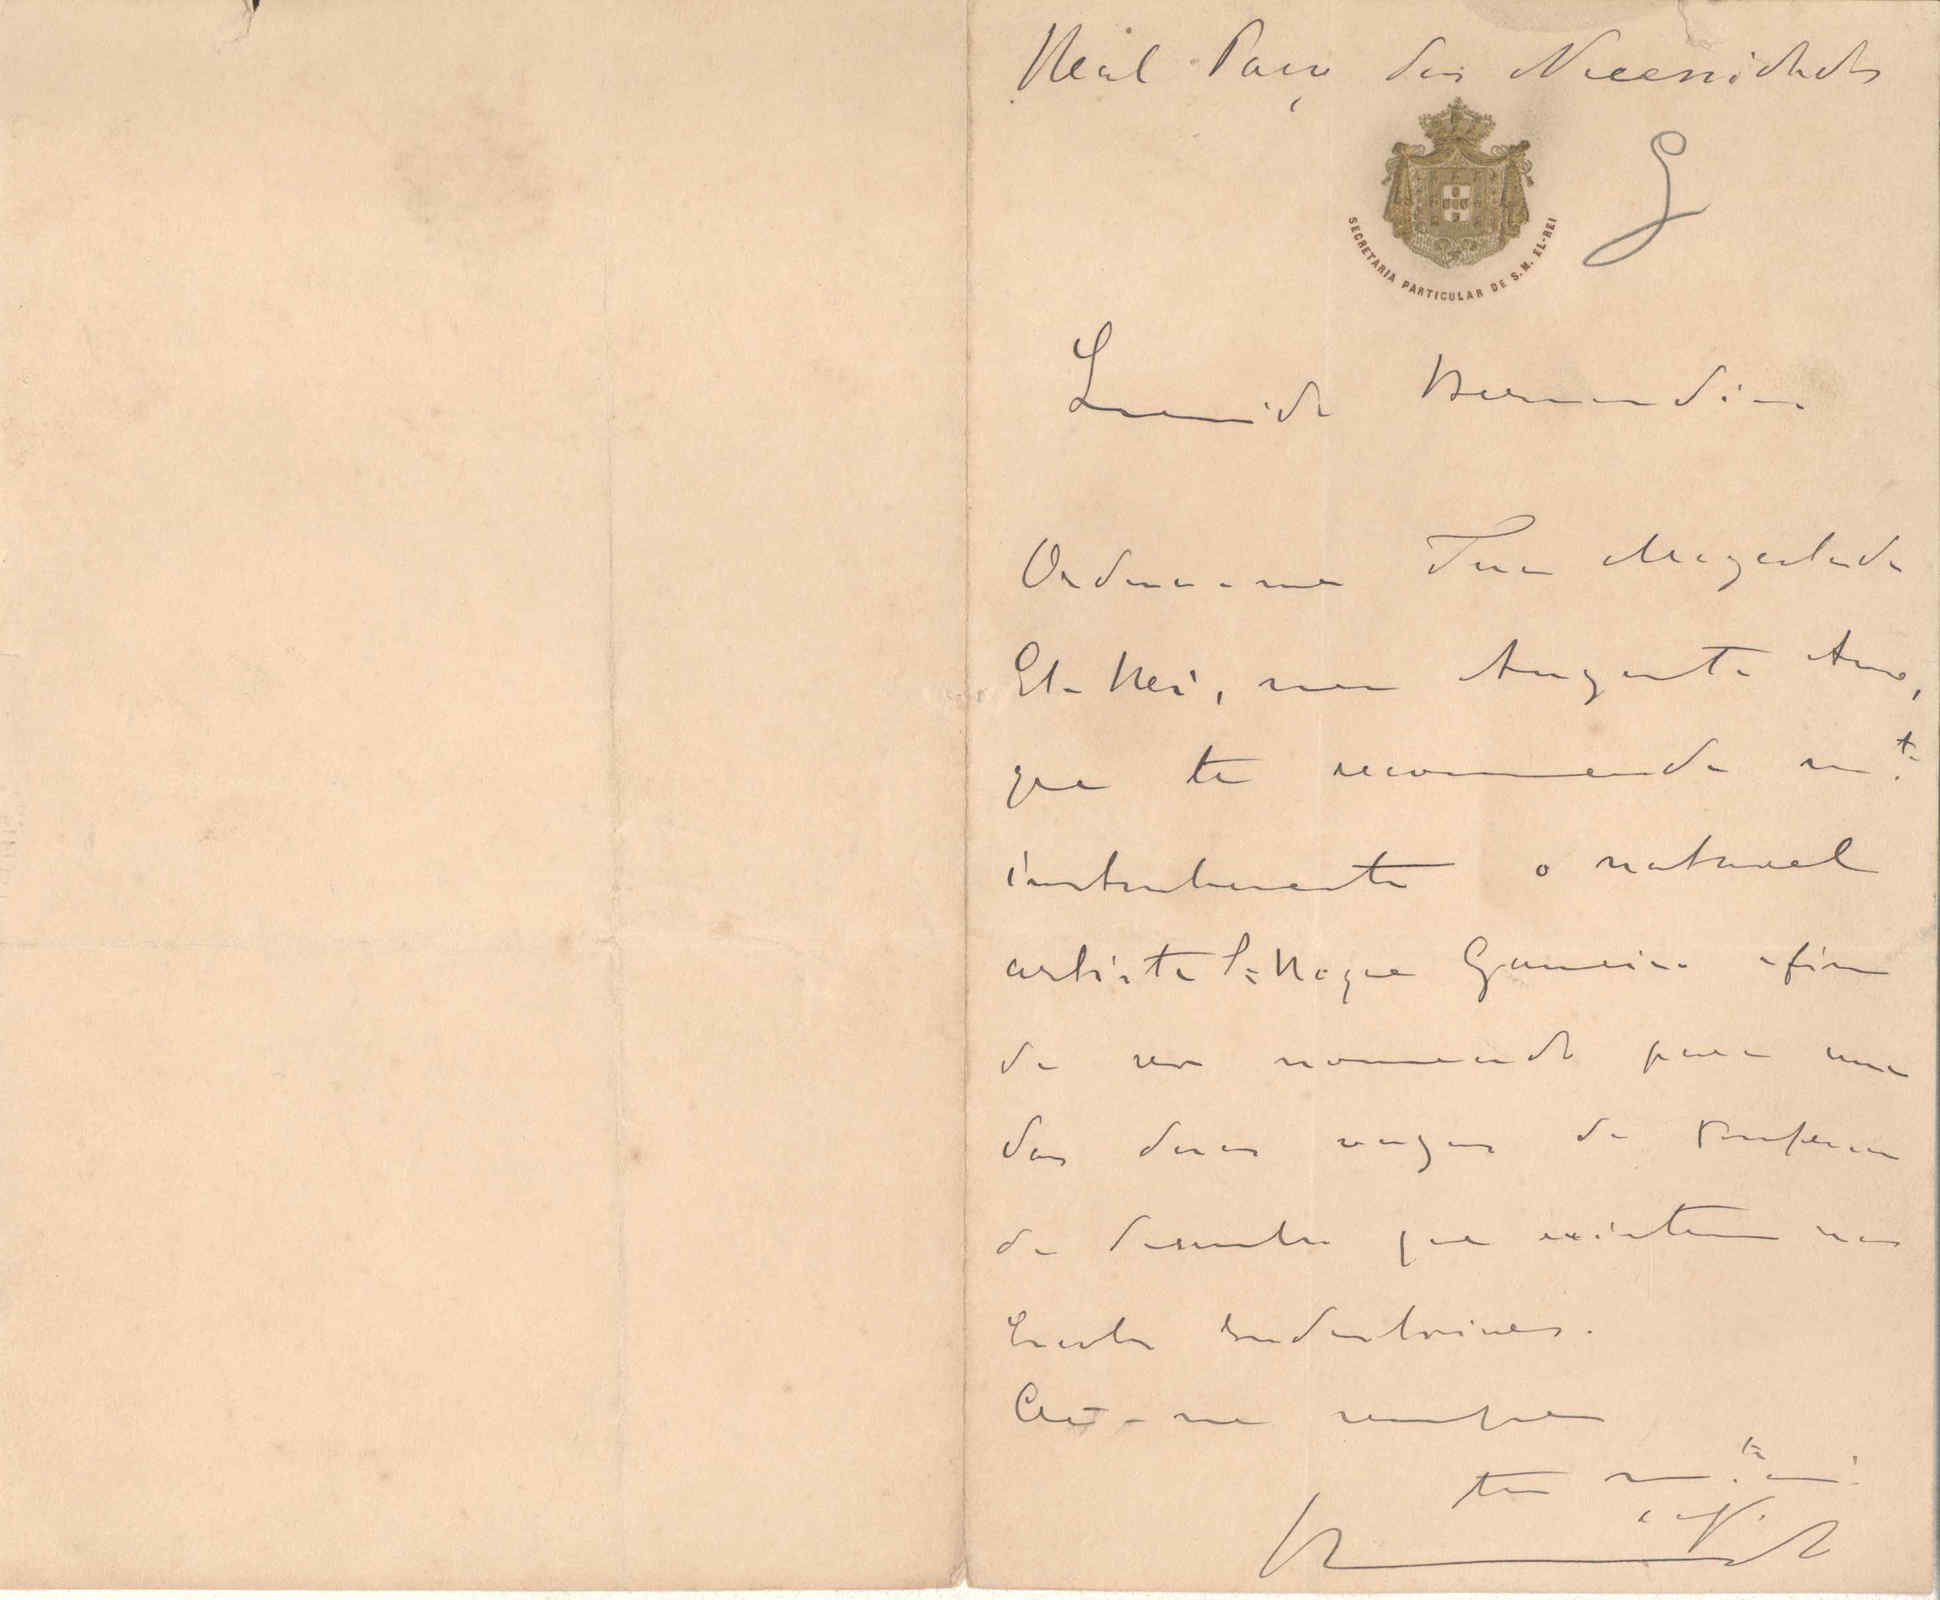 Real Paço das Necessidades
SECRETARIA PARTICULAR DE S. M. EL-REI
Bernardino
Ordena-me Sua Magestade
El-Rei, meu Augusto Amo,
que te recommende m.to
instantemente o notavel
artista Sr. Roque Gameiro afim
de ser nomeado para uma
das duas vagas de Professor
de desenho que existem nas
Escolas Industriaes.
Crê-me sempre
teu m.to am.º